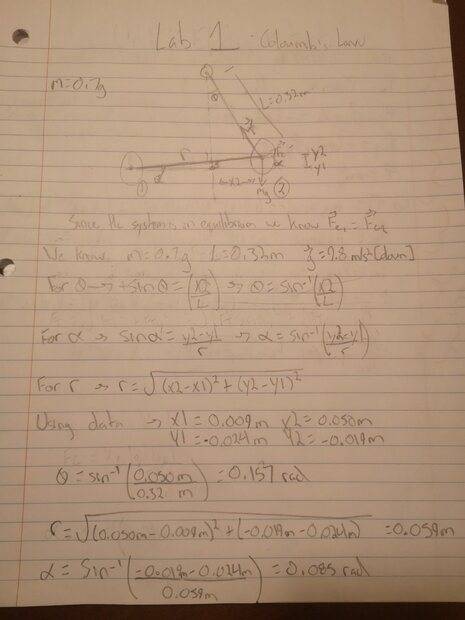 Lab 1 Coloumb's Law
m=0.7g
θ
L=0.32m
r
Fe
α
y2
y1
x2
①
mg
②
Since the system is in equilibrium we know Fe₁ = Fe₂
We know m=0.7g L=0.32m g=9.8 m/s² [down]
For θ → sinθ = (x2/L) → θ = sin⁻¹(x2/L)
For α → sinα = y2-y1/r → α = sin⁻¹(y2-y1/r)
For r → r = √(x2-x1)² + (y2-y1)²
Using data → x1 = 0.009m y2 = 0.050m
y1 = -0.024m y2 = -0.019m
θ = sin⁻¹(0.050m/0.32 m) = 0.157 rad
r = √(0.050m-0.009m)² + (-0.019m-0.024m) = 0.059m
α = sin⁻¹(-0.019m-0.024m/0.059m) = 0.085 rad